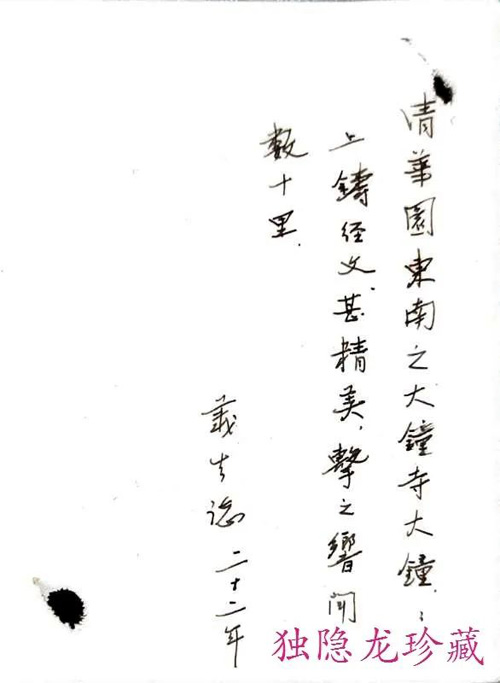 清華園東南之大鐘寺大鐘，：
上鑄经文，甚精美，擊之響聞
數十里.
誌 二十二年
独隐龙珍藏